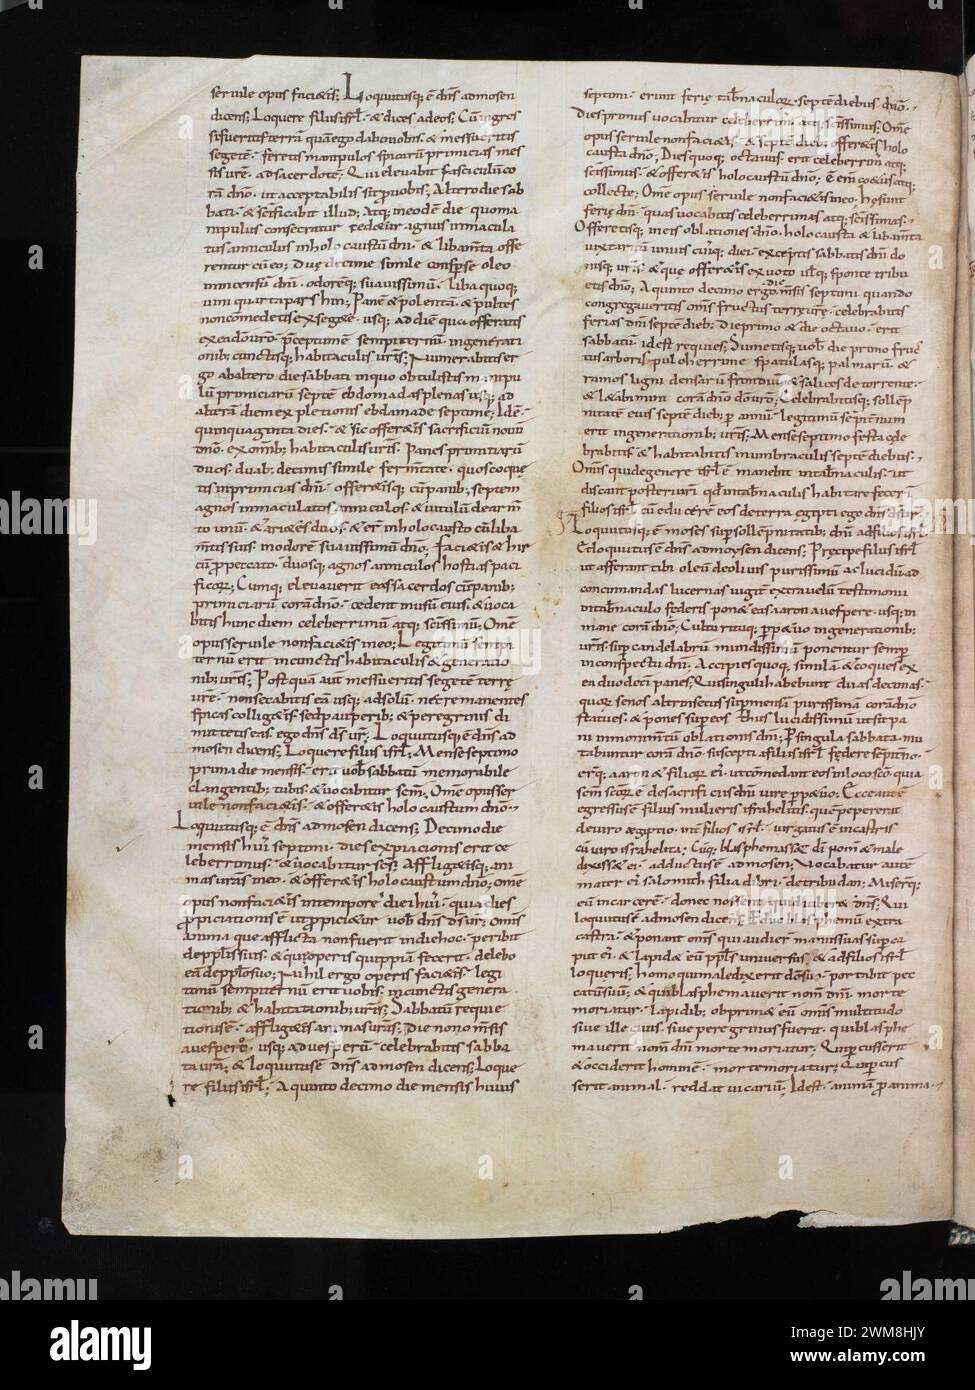 servile opus faci&is; Loquutusq; ē dn̄s admosen
dicens; Loquere filiis isrl̄ & dices adeos; Cū ingres
si fueritis terrā quā ego dabo uobis; & messueritis
segetē· feretis manipulos spicarū primicias mes
sis urē· ad sacerdotē; Qui eleuabit fasciculū co
rā dn̄o· ut acceptabilis sit pro uobis; Altero die sab
bati· & sc̄ificabit illud; Atq; in eodē die quo ma
nipulus consecratur ced&ur agnus inmacula
tus anniculus in holocaustū dn̄i· & libam̄ta offe
rentur cū eo; Duę decime simile conspse oleo
in incensū dn̄i· odorēq; suauissimū· liba quoq;
uini quarta pars hin; Panē & polentā· & pultes
non comedetis ex seg&e· usq; ad diē qua offeratis
ex ea dō urō; pceptum ē sempiternū in generati
onib; cunctisq; habitaculis ur̄is; Numerabitis er
go ab altero die sabbati in quo obtulistis manipu
lū primiciarū septē ebdomadas plenas usq; ad
alterā diem expletionis ebdomade septime; Id ē·
quinquaginta dies· & sic offer&is sacrificiū nouū
dn̄o· ex omib; habitaculis ur̄is· Panes primitiarū
duos· duab; decimis simile ferm̄tate· quos coque
tis in primicias dn̄i· offer&isq; cū panib; septem
agnos inmaculatos anniculos· & uitulū de arm̄
to unū· & ari&es duos· & er̄ in holocausto cū liba
m̄tis suis· in odorē suauissimū dn̄o; Faci&is & hir
cū p peccato· duosq; agnos anniculos hostias paci
ficor̄; Cumq; eleuauerit eas sacerdos cū panib;
primiciarū corā dn̄o· cedent in usū eius· & uoca
bitis hunc diem celeberrimū atq; sc̄issimū; Om̄e
opus seruile non faci&is in eo; Legitimū sempi
ternū erit in cunctis habitaculis & generatio
nib; ur̄is; Postquā aut̄ messueritis segetē terrę
urē· non secabitis eā usq; ad solū· nec remanentes
spicas collig&is· sed pauperib; & peregrinis di
mittetis eas· ego dn̄s ds̄ ur̄; Loquutusq; ē dn̄s ad
mosen dicens; Loquere filiis isrl̄; Mense septimo
prima die mensis· erit uob̄ sabbatū memorabile
clangentib; tubis· & uocabitur sc̄m; Om̄e opus ser
uile non faci&is· & offer&is holocaustum dn̄o·
Loquutusq; ē dn̄s ad mosen dicens; Decimo die
mensis hui' septimi· dies expiacionis erit ce
leberrimus· & uocabitur sc̄s; Afflig&isq; ani
mas ur̄as in eo· & offer&is holocaustum dn̄o; Om̄e
opus non faci&is in tempore diei hui'· quia dies
ppiciationis ē ut ppici&ur uob̄ dn̄s ds̄ ur̄; Om̄is
anima que afflicta non fuerit in die hoc· peribit
de pplis suis· & quę operis quippiā fecerit· delebo
eā de pplō suo; Nihil ergo operis faci&is· legi
timū sempiternū erit uobis· in cunctis genera
tionib; & habitationib; ur̄is; Sabbatū requie
tionis ē· afflig&is animas ur̄as; Die nono m̄sis
a uesperō· usq; ad uesperū· celebrabitis sabba
ta ur̄a; & loquutus ē dn̄s ad mosen dicens; Loque
re filiis isrl̄; A quinto decimo die mensis huius
septimi· erunt ferię tab̄naculor̄· septē diebus dn̄o·
Dies primus uocabitur celeberrim' atq; sc̄issimus; Om̄e
opus seruile non faci&is· & septē dieb; offer&is holo
causta dn̄o; Dies quoq; octauus· erit celeberrim' atq;
sc̄issimus· & offer&is holocaustū dn̄o; Ē em̄ co&us atq;
collecte; Om̄e opus seruile non faci&is in eo; hę sunt
ferię dn̄i· quas uocabitis celeberrimas atq; sc̄issimas·
Offeretisq; in eis oblationes dn̄o· holocausta & libam̄ta
iuxta ritū unius cui'q; diei· exceptis sabbatis dn̄i do
nisq; ur̄is· & quę offer&is ex uoto· ul̄ quę sponte tribu
etis dn̄o; A quinto decimo ergo die m̄sis septimi quando
congregaueritis om̄s fructus terrę urę· celebrabitis
ferias dn̄i septē dieb; die primo & die octauo· erit
sabbatū id est requies; Sumetisq; uob̄ die primo fruc
tus arboris pulcherrime spatulasq; palmarū· &
ramos ligni densarū frondiū· & salices de torrente·
& l&abimini corā dn̄o dō urō; Celebrabitisq; sollēp
nitatē eius septē dieb; p annū· legitimū sempit̄num
erit in generationib; ur̄is; Mense septimo festa cele
brabitis· & habitabitis in umbraculis septē diebus·
Om̄is qui de genere isrl̄ ē manebit in tab̄naculis· ut
discant posteri ur̄i qd̄ in tab̄naculis habitare fecerī
filios isrl̄· cū educerē eos de terra ęgipti ego dn̄s ds̄ ur̄·
Loquutusq; ē moses sup sollēpnitatib; dn̄i ad filios isrl̄·
Et loquutus ē dn̄s ad moysen dicens; Precipe filiis isrl̄
ut afferant tibi oleū de oliuis purissimū ac lucidū ad
concinnandas lucernas iugit̄ extra uelū testimonii
in tab̄naculo federis· pon&q; eas aaron a uespere· usq; in
mane corā dn̄o; Cultu rituq; ppetuo in generationib;
ur̄is; sup candelabrū mundissimū ponentur semp
in conspectu dn̄i; Accipies quoq; similā· & coques ex
ea duodeci panes; Qui singuli habebunt duas decimas·
quor̄ senos altrinsecus sup mensā purissimā corā dn̄o
statues· & pones sup eos thus lucidissimū ut sit pa
nis in monim̄tū oblationis dn̄i; P singula sabbata mu
tabuntur corā dn̄o· suscepti a filiis isrl̄ fędere sempit̄no·
er̄q; aaron & filior̄ ei'· ut comedant eos in loco sc̄o· quia
sc̄m sc̄or̄ ē· de sacrificiis dn̄i iure pp&uo; Ecce aut̄
egressus ē filius mulieris israhelitis· quē pepererat
de uiro ægiptio· int̄ filios isrl̄· iurgatus ē in castris
cū uiro israhelita; Cūq; blasphemass& dī nom̄ & male
dixiss& ei· adductus ē ad mosen; Vocabatur aut̄
mater ei' salomith filia dibri· de tribu dan; Miserq;
eū in carcerē· donec nossent quid iuber& dn̄s; Qui
loquutus ē ad mosen dicens; Educ blasphemū extra
castra· & ponant om̄s qui audier̄ manus suas sup ca
put ei'· & lapid& eū ppl̄s uniuersus; & ad filios isrl̄
loqueris; homo qui maledixerit dō suo· portabit pec
catū suū; & qui blasphemauerit nom̄ dn̄i· morte
moriatur· lapidib; obprim& eū om̄is multitudo
siue ille ciuis· siue peregrinus fuerit· qui blasphe
mauerit nom̄ dn̄i morte moriatur· Qui pcusserit
& occiderit hominē· morte moriatur; Qui pcus
serit animal· reddat uicariū; Id est· animā p anima·
alamy
Image ID: 2WM8HJY
www.alamy.com